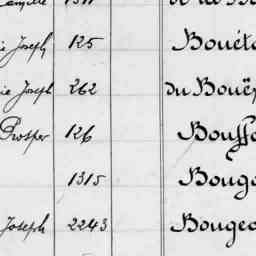 Joseph 125 Bouét
Joseph 262 du Bouë
Prosper 126 Bouff
1315 Boug
Joseph 2243 Bouge